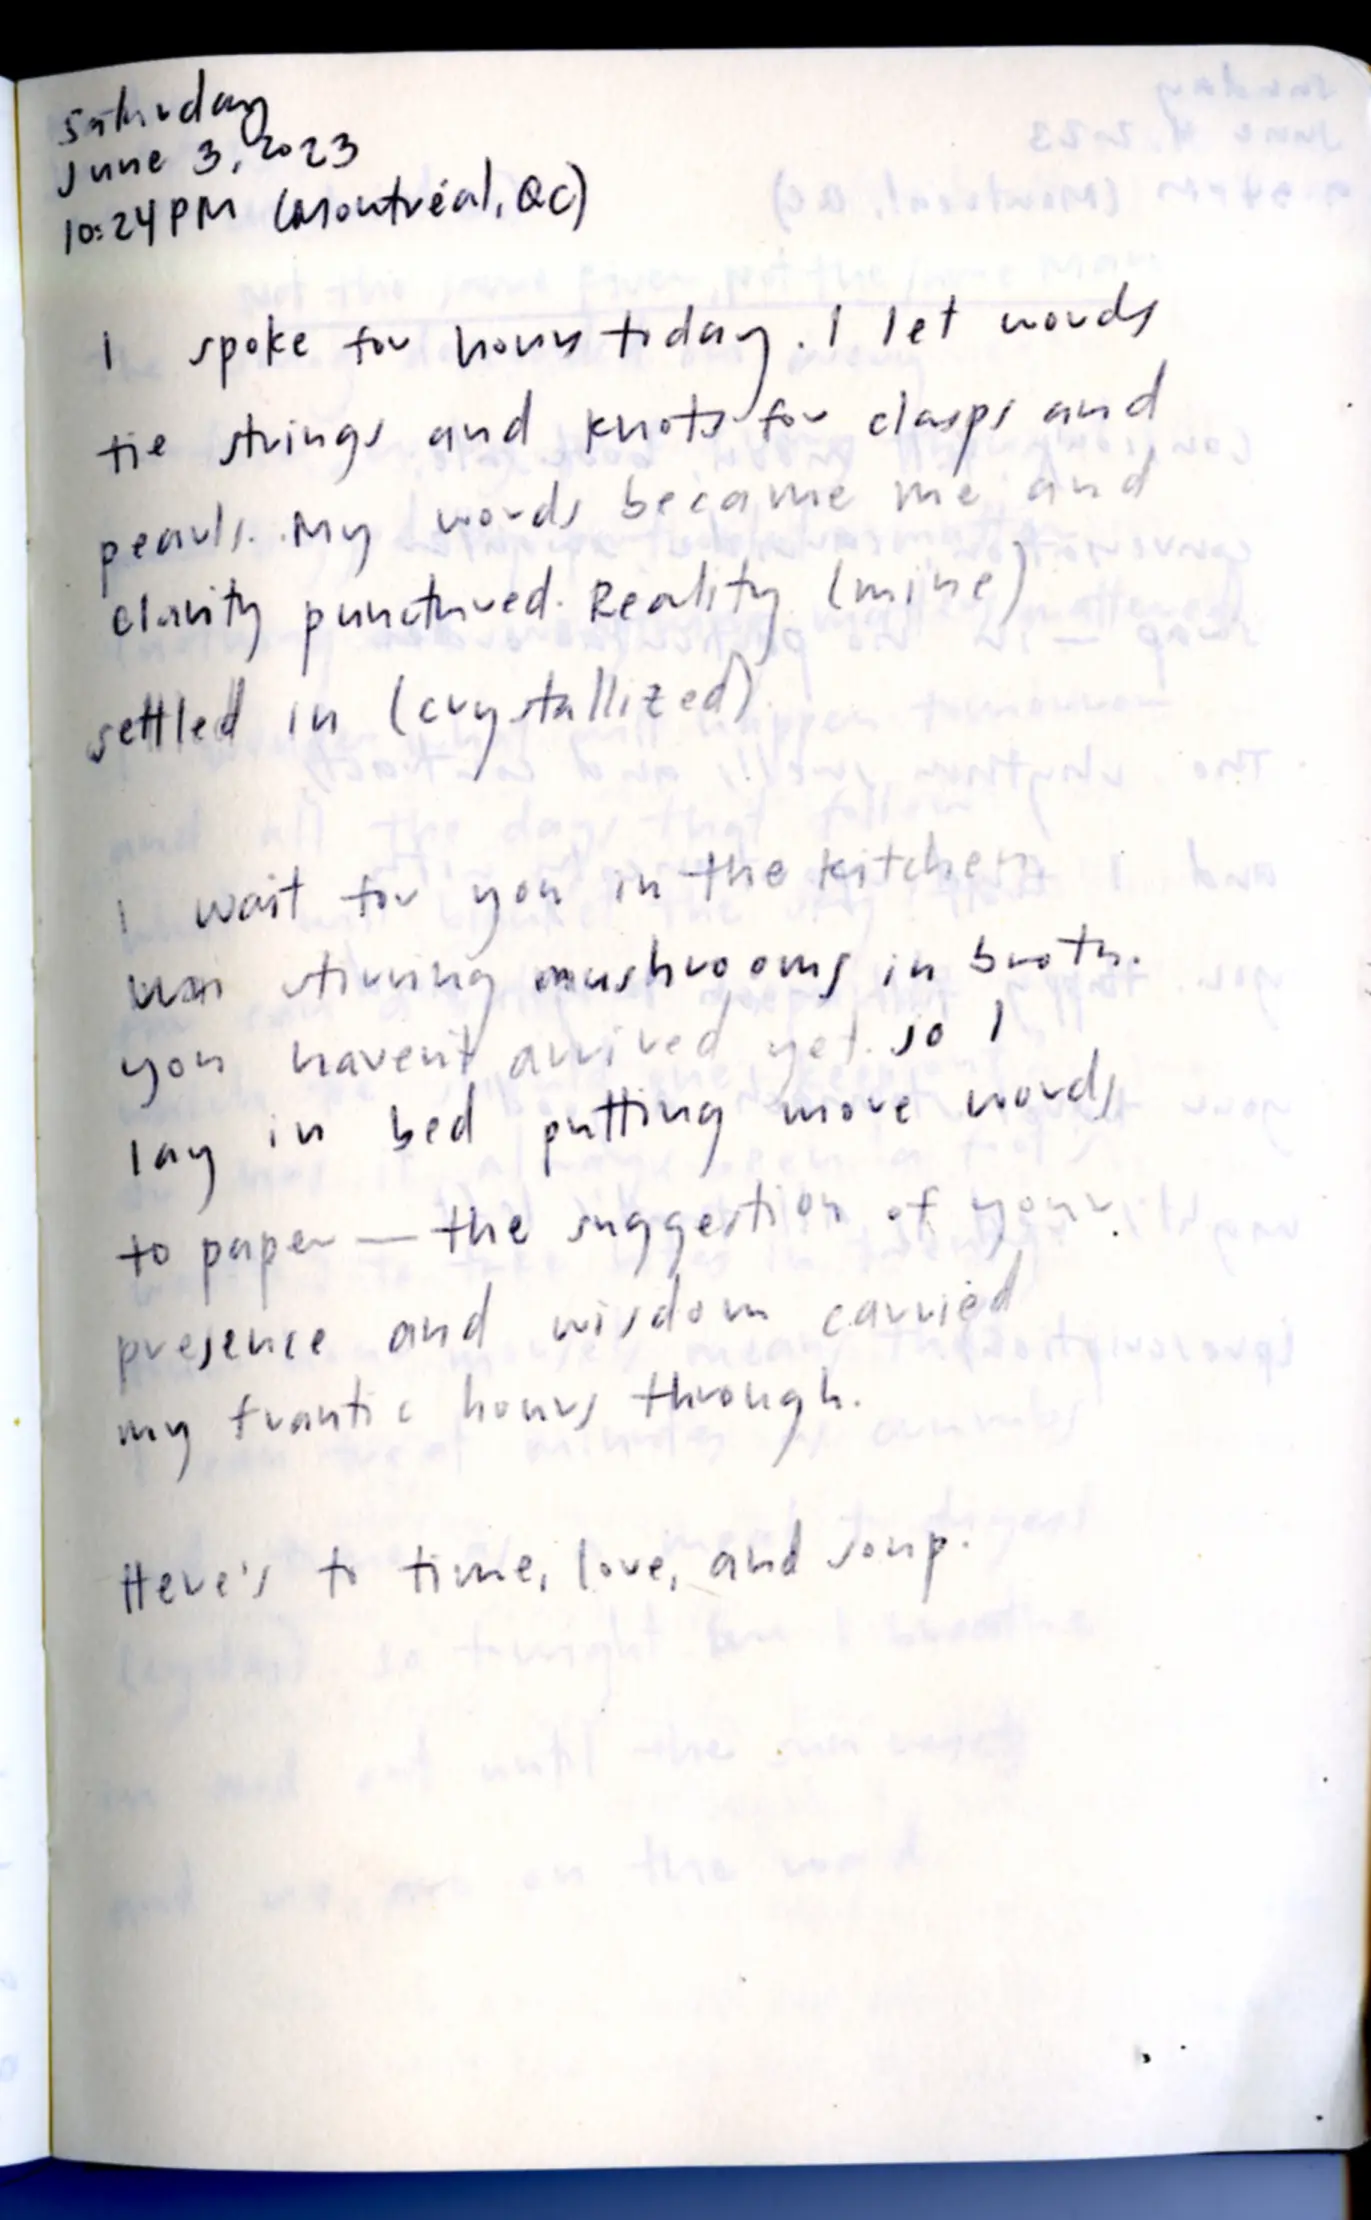 Saturday
June 3, 2023
10:24 PM (Montréal, QC)
I spoke for hours today. I let words
tie strings and knots for clasps and
pearls. My words became me and
clarity punctured. Reality (mine)
settled in (crystallized).
I wait for you in the kitchen
stirring mushrooms in broth.
you haven't arrived yet. so I
lay in bed putting more words
to paper — the suggestion of your
presence and wisdom carried
my frantic hours through.
Here's to time, love, and soup.